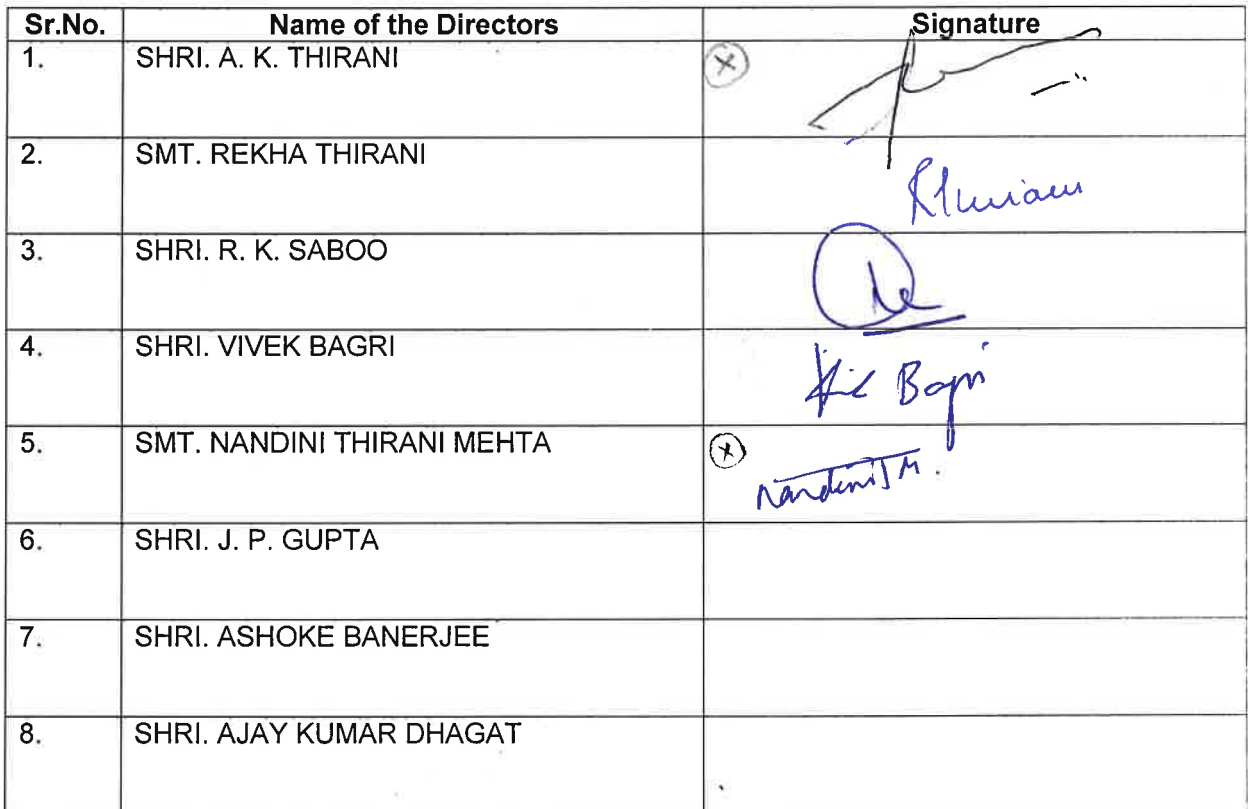 Sr.No. Name of the Directors Signature
1. SHRI. A. K. THIRANI
2. SMT. REKHA THIRANI
3. SHRI. R. K. SABOO
4. SHRI. VIVEK BAGRI
5. SMT. NANDINI THIRANI MEHTA
6. SHRI. J. P. GUPTA
7. SHRI. ASHOKE BANERJEE
8. SHRI. AJAY KUMAR DHAGAT